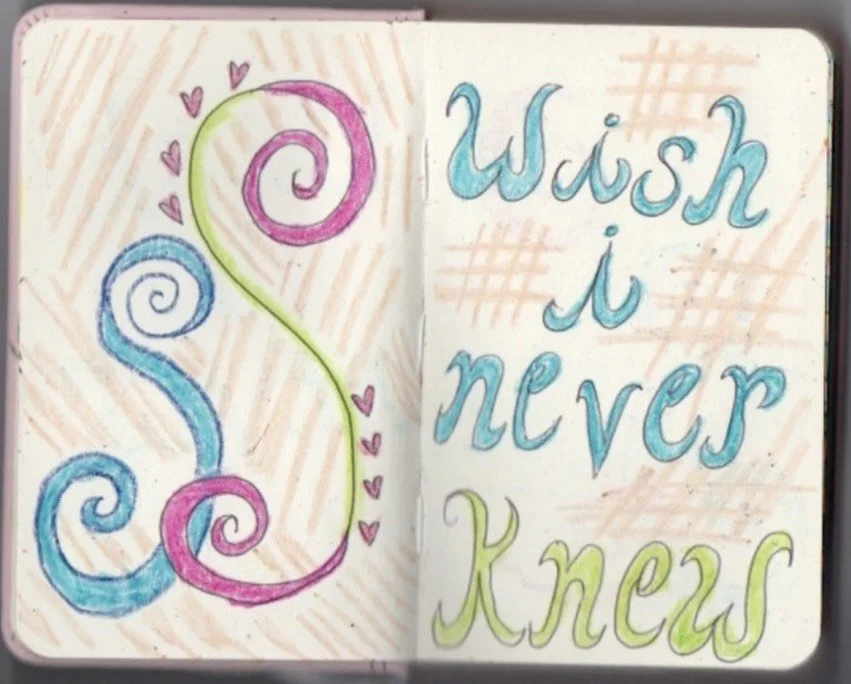 Wish
i
never
Knew